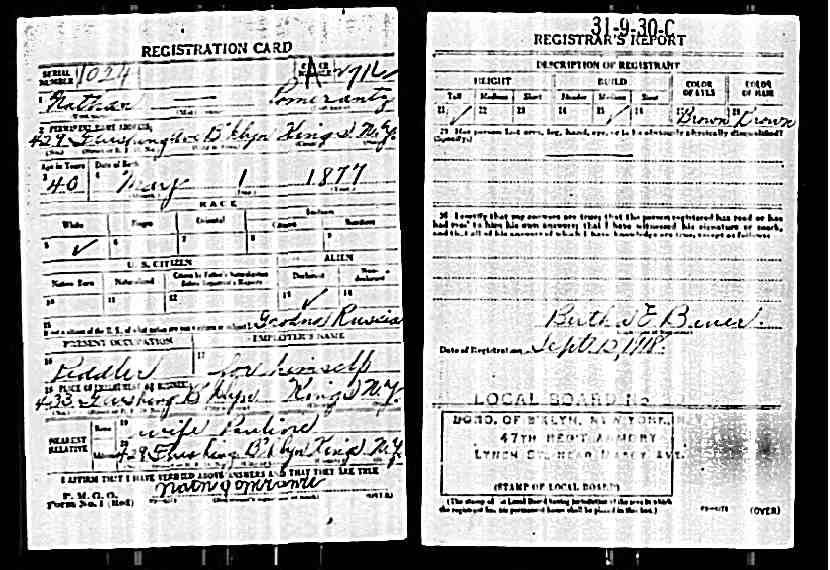 REGISTRATION CARD
SERIAL NUMBER 1024
1 Nathan Pomerantz
2 PERMANENT HOME ADDRESS:
429 Flushing Ave B'klyn Kings N.Y.
Age in Years Date of Birth
3 40 4 May 1 1877
RACE
White Negro Oriental Indian
Citizen
5 ✓ 6 7 8 9
U. S. CITIZEN ALIEN
Native Born Naturalized Citizen by Father's Naturalization Before Registrant's Majority Declarant Non-declarant
10 11 12 13 ✓ 14
15
If not a citizen of the U. S., of what nation are you a citizen or subject? Grodno Russia
PRESENT OCCUPATION EMPLOYER'S NAME
16 Peddler 17 for himself
18 PLACE OF EMPLOYMENT OR BUSINESS
433 Flushing B'klyn Kings N.Y.
NEAREST RELATIVE
Name 19 wife Pauline
Address 20 429 Flushing B'klyn Kings N.Y.
I AFFIRM THAT I HAVE VERIFIED ABOVE ANSWERS AND THAT THEY ARE TRUE
P. M. G. O.
Form No. 1 (Red) (OVER)
31-9-30-C
REGISTRAR'S REPORT
DESCRIPTION OF REGISTRANT
HEIGHT BUILD COLOR OF EYES COLOR OF HAIR
Tall Medium Short Slender Medium Stout
21 ✓ 22 23 24 25 ✓ 26 27 Brown 28 Brown
29 Has person lost arm, leg, hand, eye, or is he obviously physically disqualified?
(Specify.)
30 I certify that my answers are true; that the person registered has read or has
had read to him his own answers; that I have witnessed his signature or mark,
and that all of his answers of which I have knowledge are true, except as follows:
Date of Registration Sept. 12, 1918
LOCAL BOARD
BORO. OF B'KLYN, NEW YORK
47TH REGT ARMORY
LYNCH ST. NEAR MARCY AVE.
(STAMP OF LOCAL BOARD)
(The stamp of the Local Board having jurisdiction of the area in which
the registrant has his permanent home shall be placed in this box.)
(OVER)